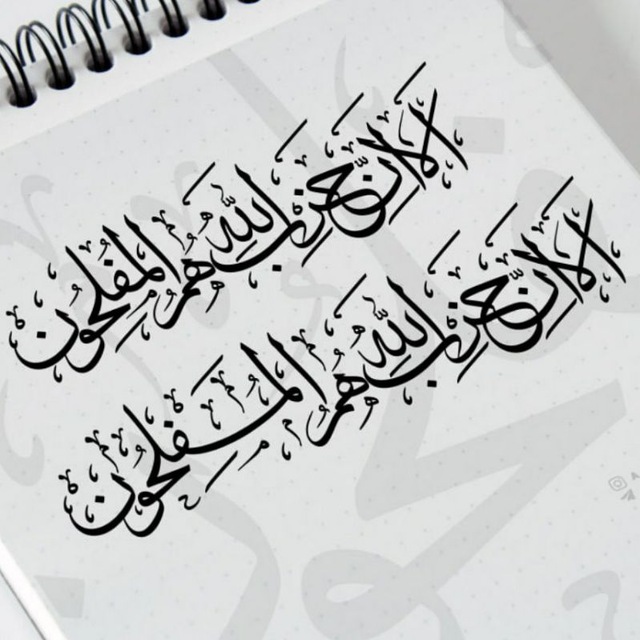 ألا إن حزب الله هم المفلحون
ألا إن حزب الله هم المفلحون